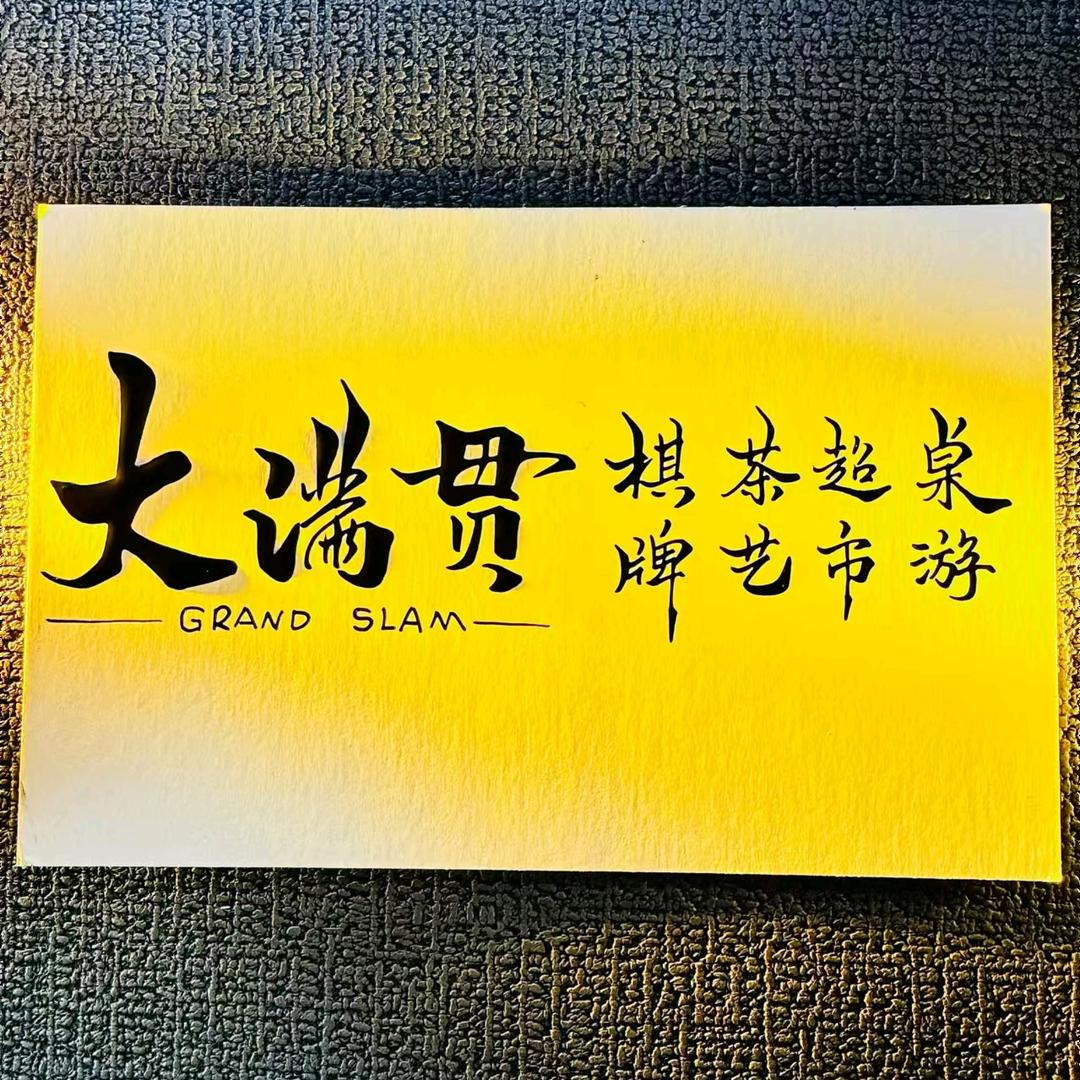 大满贯
GRAND SLAM
棋牌
茶艺
超市
桌游